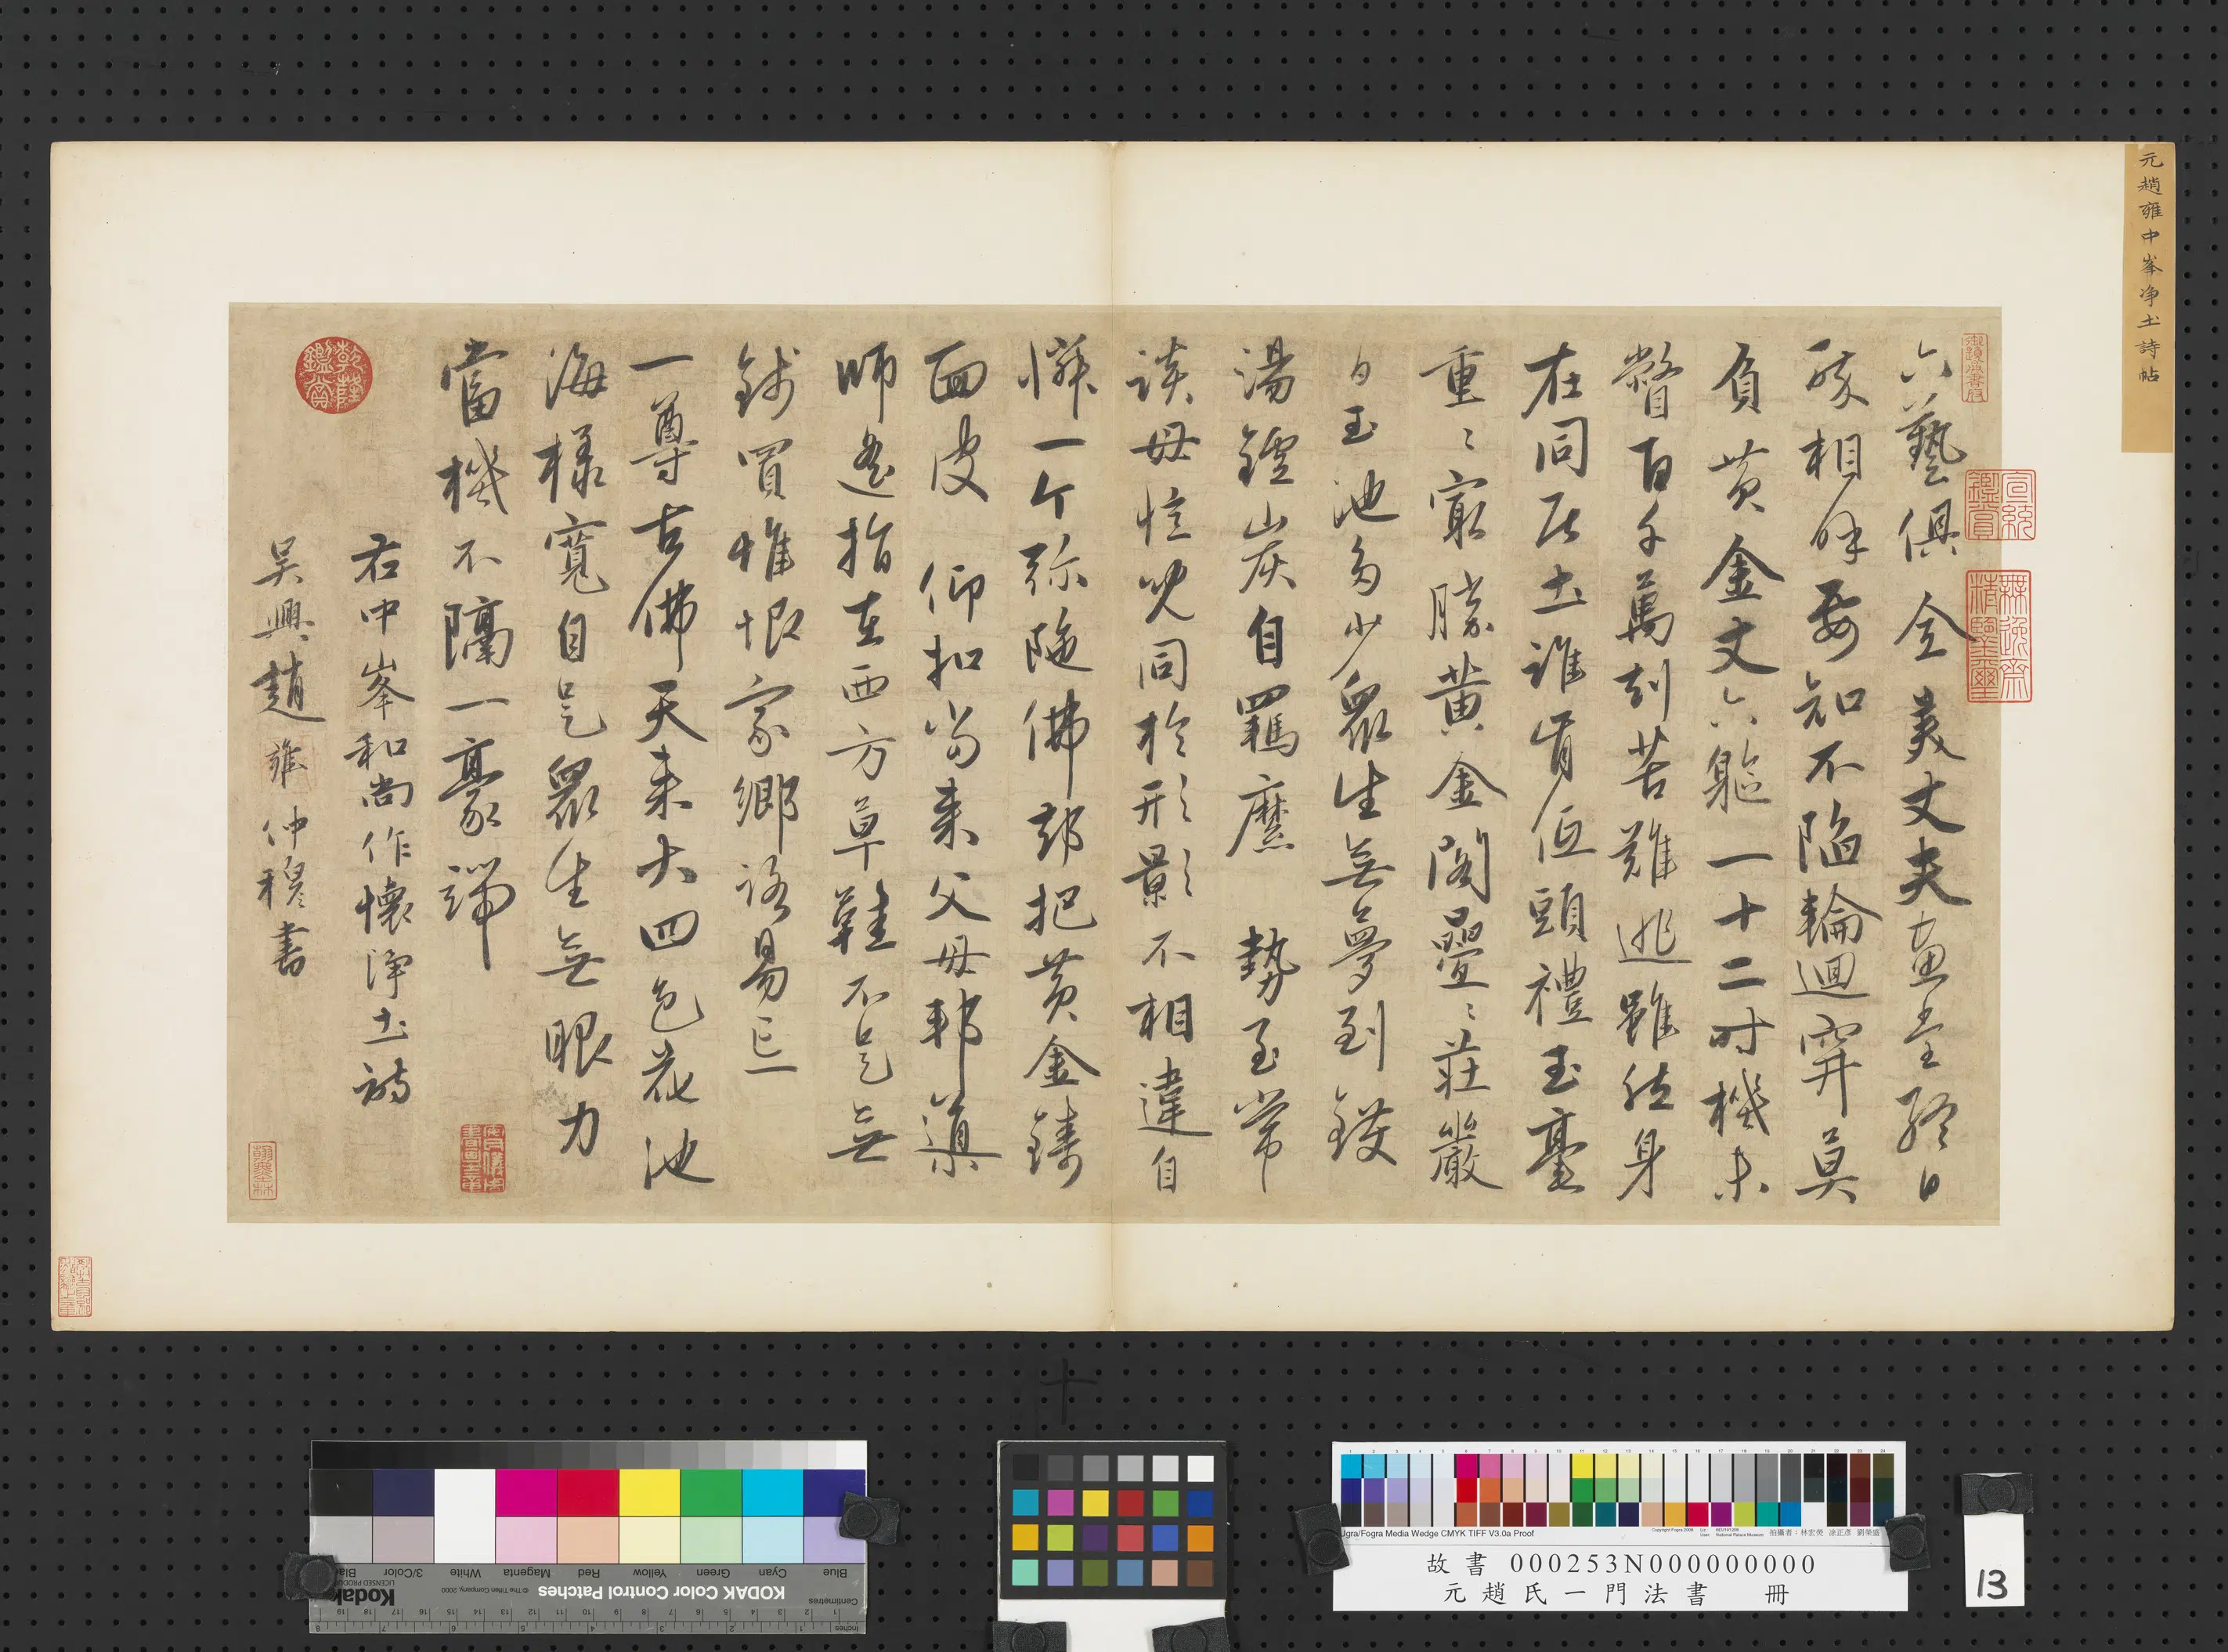 元趙雍中峯淨土詩帖
六藝俱全美丈夫畫堂終日
醉相呼要知不陷輪迴穽莫
負黃金丈六軀一十二時機未
瞥百千萬刦苦難逃雖然身
在同居土誰肯低頭禮玉毫
重重寶勝黃金閣疊疊莊嚴
白玉池多少眾生無夢到鑊
湯罏炭自羈縻 勢至常
談母憶兒同於形影不相違自
憐一个彌陁佛却把黃金鑄
面皮 仰扣當來父母邦導
師遙指在西方草鞋不是無
錢買惟恨家鄉路易忘
一尊古佛天來大四色花池
海樣寬自是眾生無眼力
當機不隔一豪端
右中峯和尚作懷淨土詩
吳興趙雍仲穆書
乾隆鑑賞
宣統鑑賞
無逸齋精鑒璽
Blue
Cyan
Green
Yellow
Red
Magenta
White
3/Color
Black
KODAK Color Control Patches
© The Tiffen Company, 2000
Kodak
LICENSED PRODUCT
Centimetres
Inches
Ugra/Fogra Media Wedge CMYK TIFF V3.0a Proof
National Palace Museum
故書 000253N000000000
元趙氏一門法書 冊
13